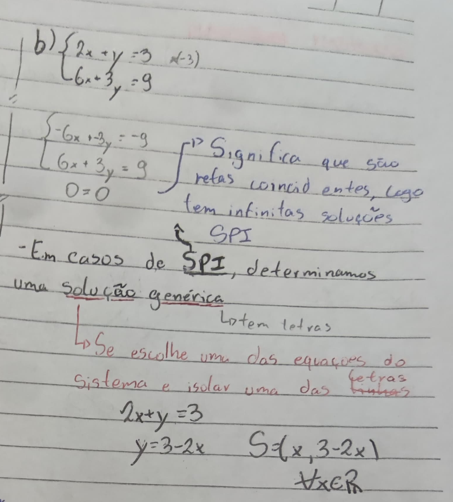 b) {2x + y = 3 x(-3)
{6x + 3y = 9
{-6x + 3y = -9
{6x + 3y = 9
0 = 0
Significa que são
retas coincidentes, logo
tem infinitas soluções
SPI
- Em casos de SPI, determinamos
uma solução genérica
↳ tem letras
↳ Se escolhe uma das equações do
sistema e isolar uma das letras
2x + y = 3
y = 3 - 2x
S = (x, 3 - 2x)
∀x∈R